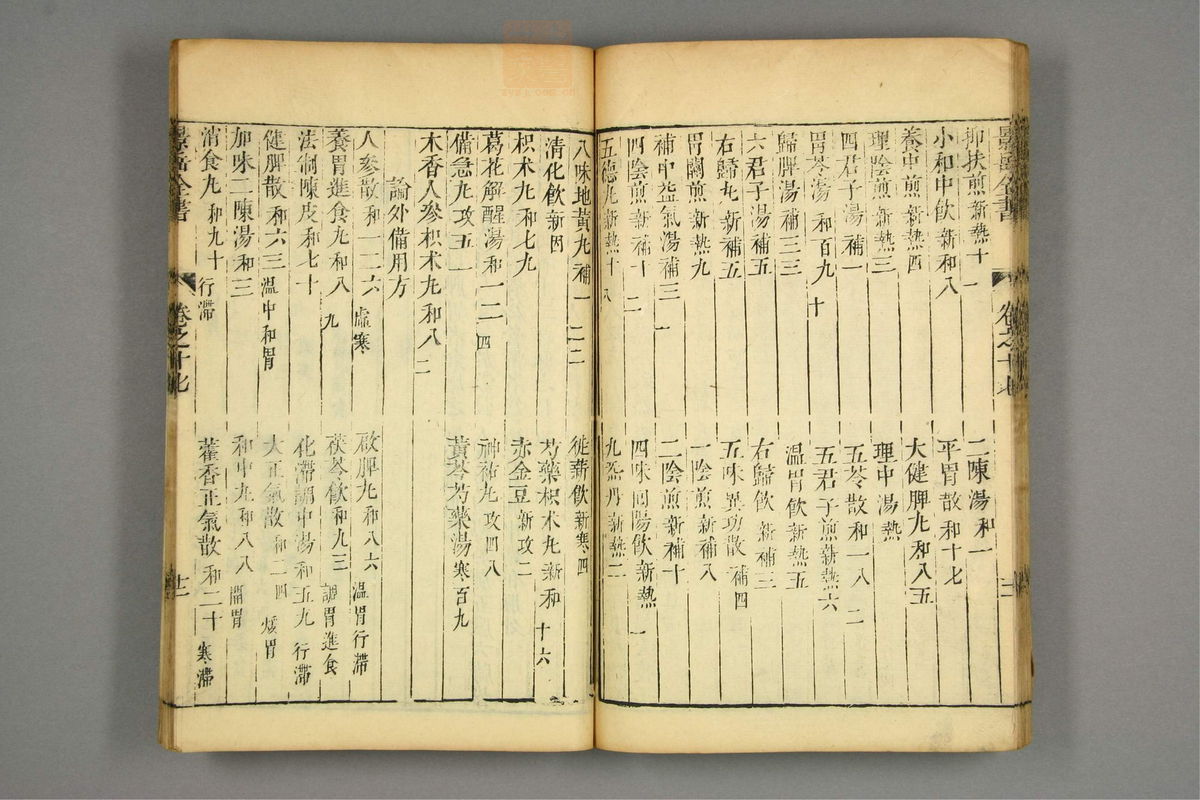 景岳全書 卷之十七
抑扶煎 新熱十一 二陳湯 和一
小和中飲 新和八 平胃散 和十七
養中煎 新熱四 大健脾丸 和八五
理陰煎 新熱三 理中湯 熱一
四君子湯 補一 五苓散 和一八二
胃苓湯 和百九十 五君子煎 新熱六
歸脾湯 補三二 溫胃飲 新熱五
六君子湯 補五 右歸飲 新補三
右歸丸 新補五 五味異功散 補四
胃關煎 新熱九 一陰煎 新補八
補中益氣湯 補三一 二陰煎 新補十
四陰煎 新補十二 四味回陽飲 新熱一
五德丸 新熱十八 九炁丹 新熱二
八味地黃丸 補一二二 徙薪飲 新寒四
清化飲 新因 芍藥枳朮丸 新和十六
枳朮丸 和七九 赤金豆 新攻二
葛花解酲湯 和一二四 神祐丸 攻四八
備急丸 攻五一 黃芩芍藥湯 寒百九
木香人參枳朮丸 和八二
論外備用方
人參散 和一二六 虛寒 啟脾丸 和八六 溫胃行滯
養胃進食丸 和八九 茯苓飲 和九三 調胃進食
法制陳皮 和七十 化滯調中湯 和五九 行滯
健脾散 和六三 溫中和胃 大正氣散 和二四 煖胃
加味二陳湯 和三 和中丸 和八八 開胃
消食丸 和九十 行滯 藿香正氣散 和二十 寒滯
景岳全書 卷之十七